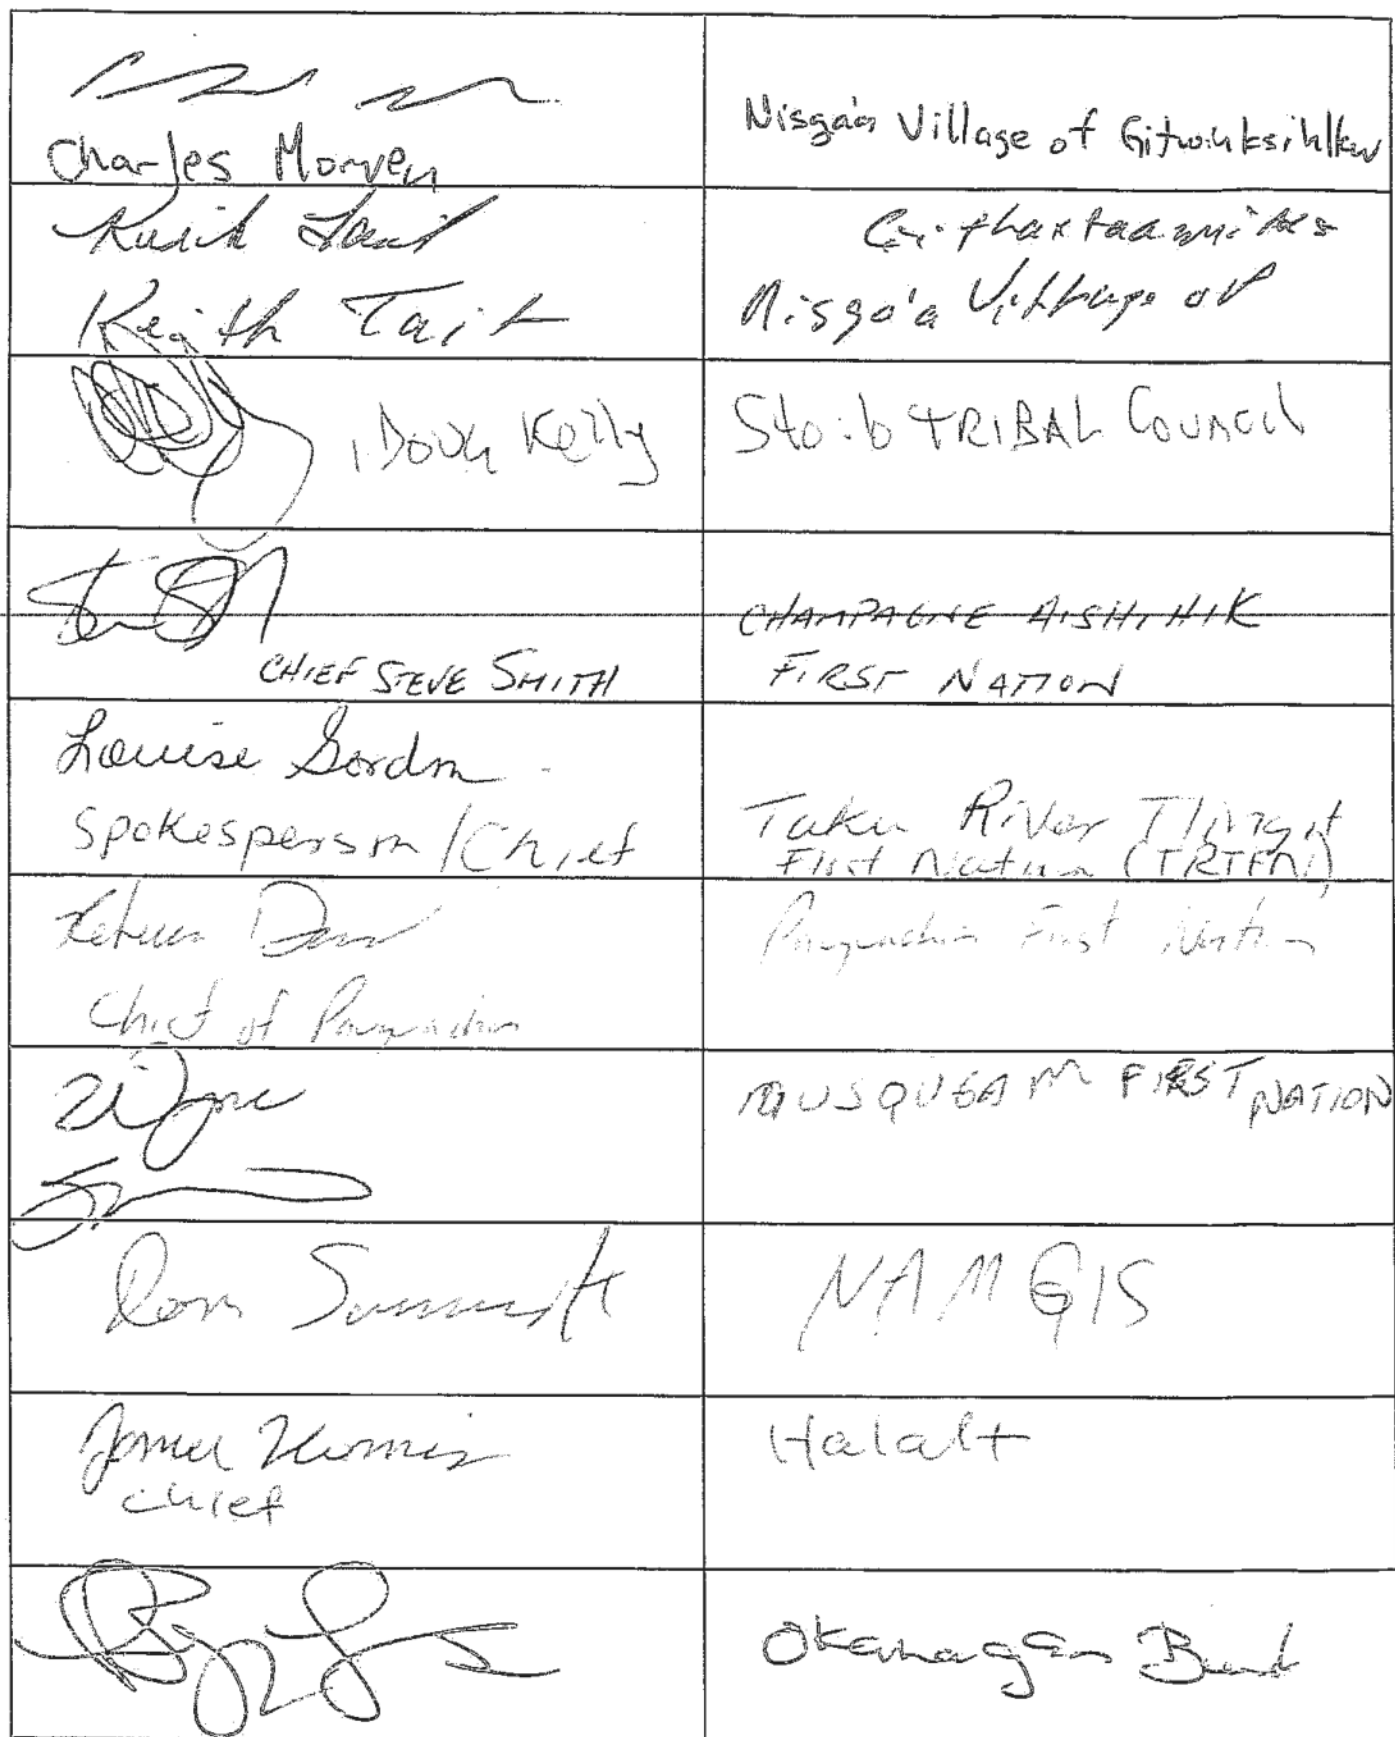 Charles Morven
Nisga'a Village of Gitwinksihlkw
Keith Tait
Keith Tait
Nisga'a Village of
Doug Kelly
Sto:lo TRIBAL COUNCIL
CHIEF STEVE SMITH
CHAMPAGNE AISHIHIK
FIRST NATION
Louise Gordon
Spokesperson / Chief
Taku River Tlingit
First Nation (TRTFN)
Chief of
First Nation
MUSQUEAM FIRST NATION
Don
NAMGIS
James Thomas
Chief
Halalt
Okanagan Band